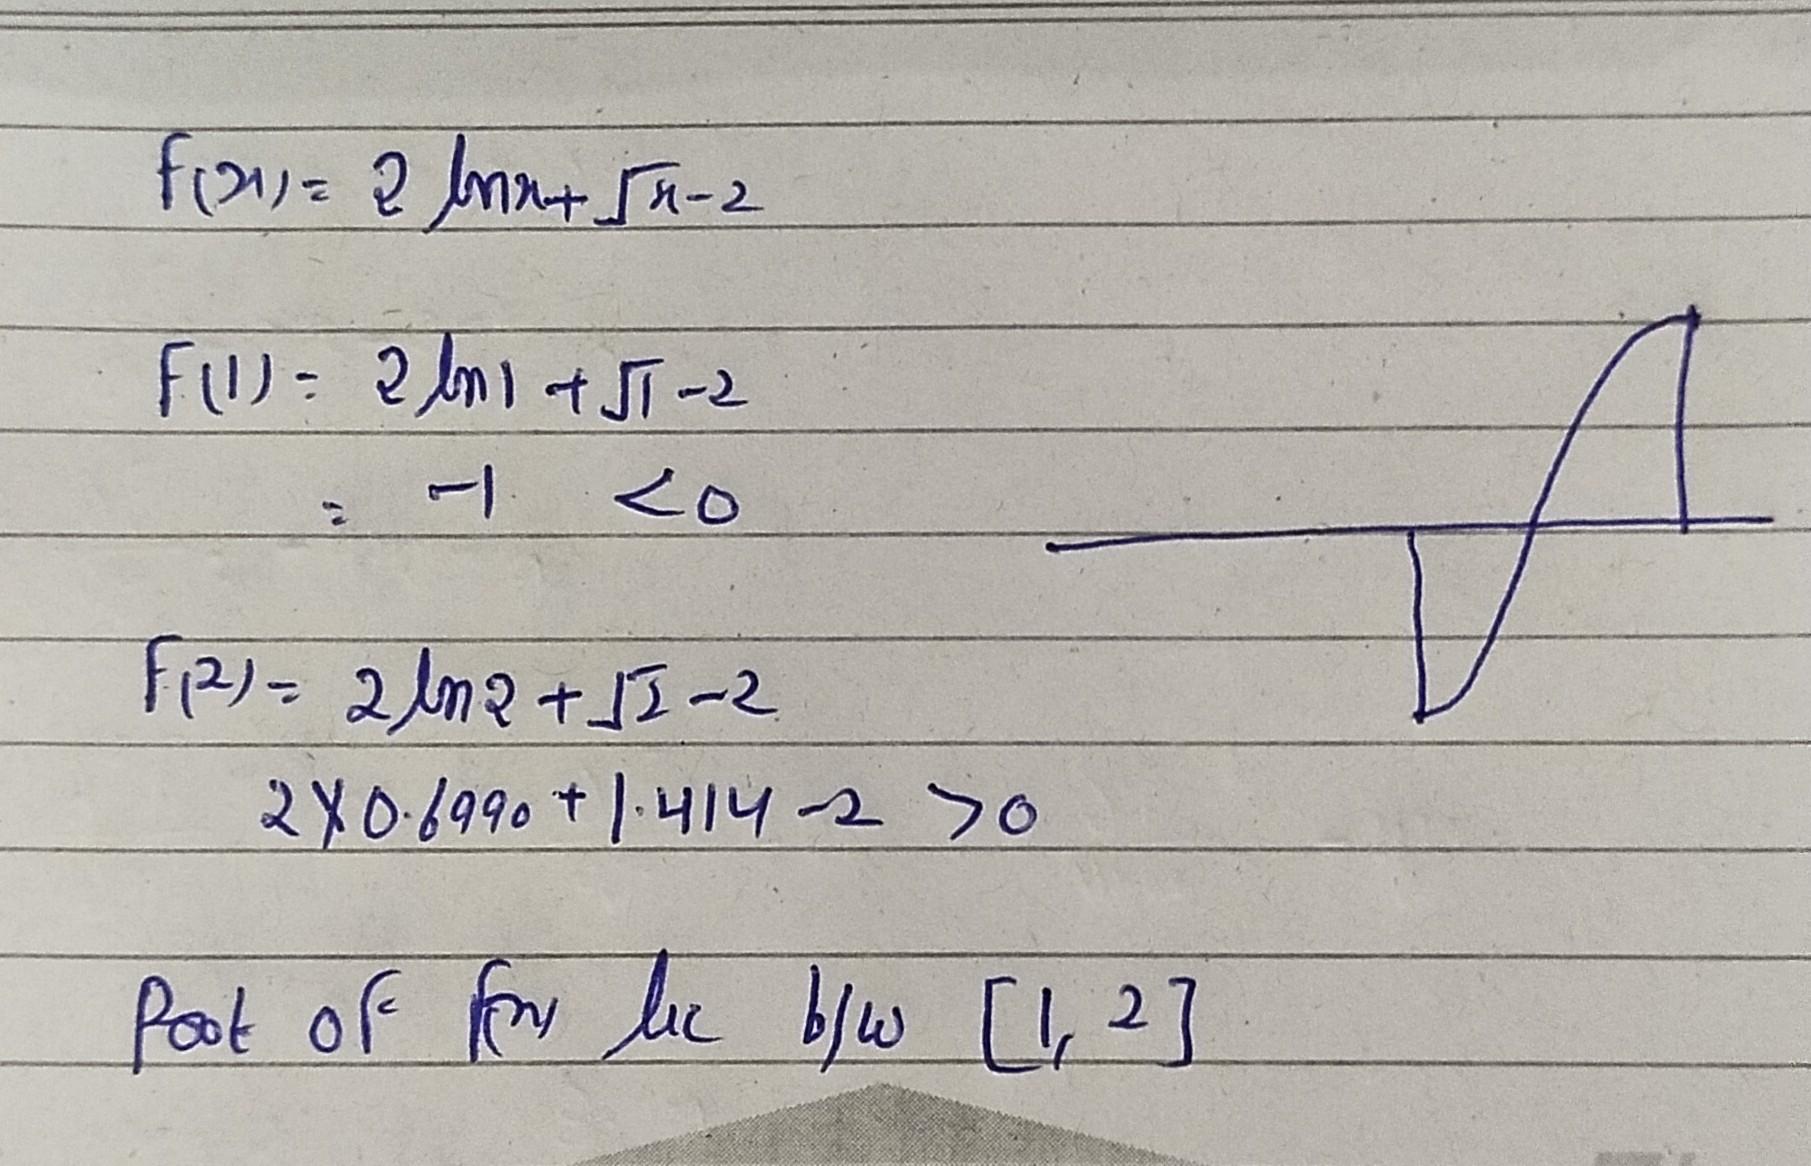 f(x) = 2 ln x + √x - 2
F(1) = 2 ln 1 + √1 - 2
= -1 < 0
F(2) = 2 ln 2 + √2 - 2
2 × 0.6990 + 1.414 - 2 > 0
Root of f(x) lie b/w [1, 2]